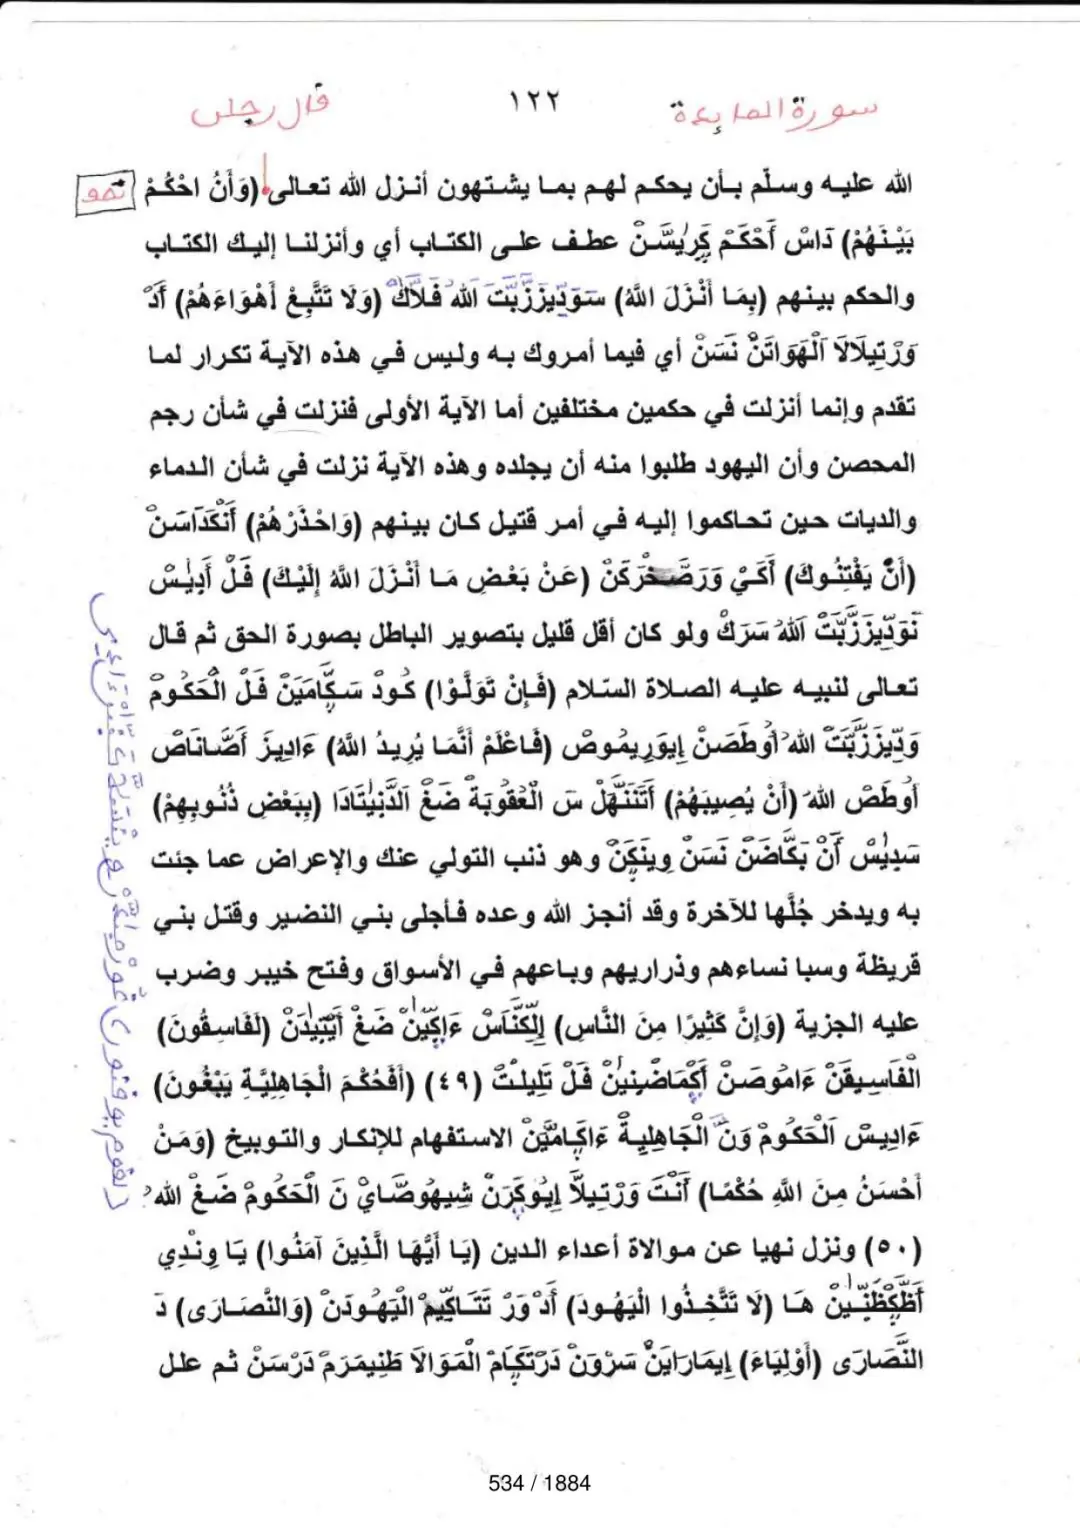 سورة المايدة
١٢٢
قال رجلن
الله عليه وسلّم بأن يحكم لهم بما يشتهون أنزل الله تعالى (وَأَنُ احْكُمْ
ثمو
بَيْنَهُمْ) دَاسْ أَحْكَمْ كَرِيسَّنْ عطف على الكتاب أي وأنزلنا إليك الكتاب
والحكم بينهم (بِمَا أَنْزَلَ اللهُ) سَوَدِّيزَزُّبَّتَ اللهُ فَلَّاكْ (وَلَا تَتَّبِعْ أَهْوَاءَهُمْ) أَدْ
وَرْتِيلَالَا الْهَوَاتَنَّ نَسَنْ أي فيما أمروك به وليس في هذه الآية تكرار لما
تقدم وإنما أنزلت في حكمين مختلفين أما الآية الأولى فنزلت في شأن رجم
المحصن وأن اليهود طلبوا منه أن يجلده وهذه الآية نزلت في شأن الدماء
والديات حين تحاكموا إليه في أمر قتيل كان بينهم (وَاحْذَرْهُمْ) أَنْكَدَاسَنْ
(أَنْ يَفْتِنُوكَ) أَكَيْ وَرَصَّخْرَكَنْ (عَنْ بَعْضِ مَا أَنْزَلَ اللهُ إِلَيْكَ) فَلْ أَدِيْسْ
نَوَدِّيزَزُّبَّتْ اللهُ سَرَكْ ولو كان أقل قليل بتصوير الباطل بصورة الحق ثم قال
تعالى لنبيه عليه الصلاة السّلام (فَإِنْ تَوَلَّوْا) كُودْ سَكَّامَيَنْ فَلْ الْحَكُومْ
وَدِّيزَزُّبَّتَ اللهُ أُوطَصَنْ إِيوَرِيمُوصْ (فَاعْلَمْ أَنَّمَا يُرِيدُ اللهُ) ءَادِيزَ أَصَّانَاصْ
أُوطَصْ اللهُ (أَنْ يُصِيبَهُمْ) أَتَنَنَّهْلْ سَ الْعَقُوبَةْ ضَغْ الدَّنْيْتَادَا (بِبَعْضِ ذُنُوبِهِمْ)
سَدِيْسْ أَنْ بَكَّاضَنْ نَسَنْ وِينَكِنْ وهو ذنب التولي عنك والإعراض عما جئت
به ويدخر جُلَّها للآخرة وقد أنجز الله وعده فأجلى بني النضير وقتل بني
قريظة وسبا نساءهم وذراريهم وباعهم في الأسواق وفتح خيبر وضرب
عليه الجزية (وَإِنَّ كَثِيرًا مِنَ النَّاسِ) إِلِكْنَّاسْ ءَاكِيَنْ ضَغْ أَيْتِيدَنْ (لَفَاسِقُونَ)
الْفَاسِيقَنْ ءَامُوصَنْ أَكْمَاضْنِينْ فَلْ تَلِيلْتْ (٤٩) (أَفَحُكْمَ الْجَاهِلِيَّةِ يَبْغُونَ)
ءَادِيسْ الْحَكُومْ وَنَّ الْجَاهِلِيةْ ءَاكَامَيَّنْ الاستفهام للإنكار والتوبيخ (وَمَنْ
أَحْسَنُ مِنَ اللَّهِ حُكْمًا) أَنْتَ وَرْتِيلَّا إِيُوكَرَنْ شِيهُوصَّايْ نَ الْحَكُومْ ضَغْ اللهُ
(٥٠) ونزل نهيا عن موالاة أعداء الدين (يَا أَيُّهَا الَّذِينَ آمَنُوا) يَا وِنْدِي
أَظَّكْظَنِّينْ هَا (لَا تَتَّخِذُوا الْيَهُودَ) أَدْ وَرْ تَتَاكِّيمْ الْيَهُودَنْ (وَالنَّصَارَى) دَ
النَّصَارَى (أَوْلِيَاءَ) إِيمَارَايَنْ سَرْوَنْ دَرْتَكَامْ الْمَوَالَا طَنِيمَرَمْ دَرْسَنْ ثم علل
534 / 1884